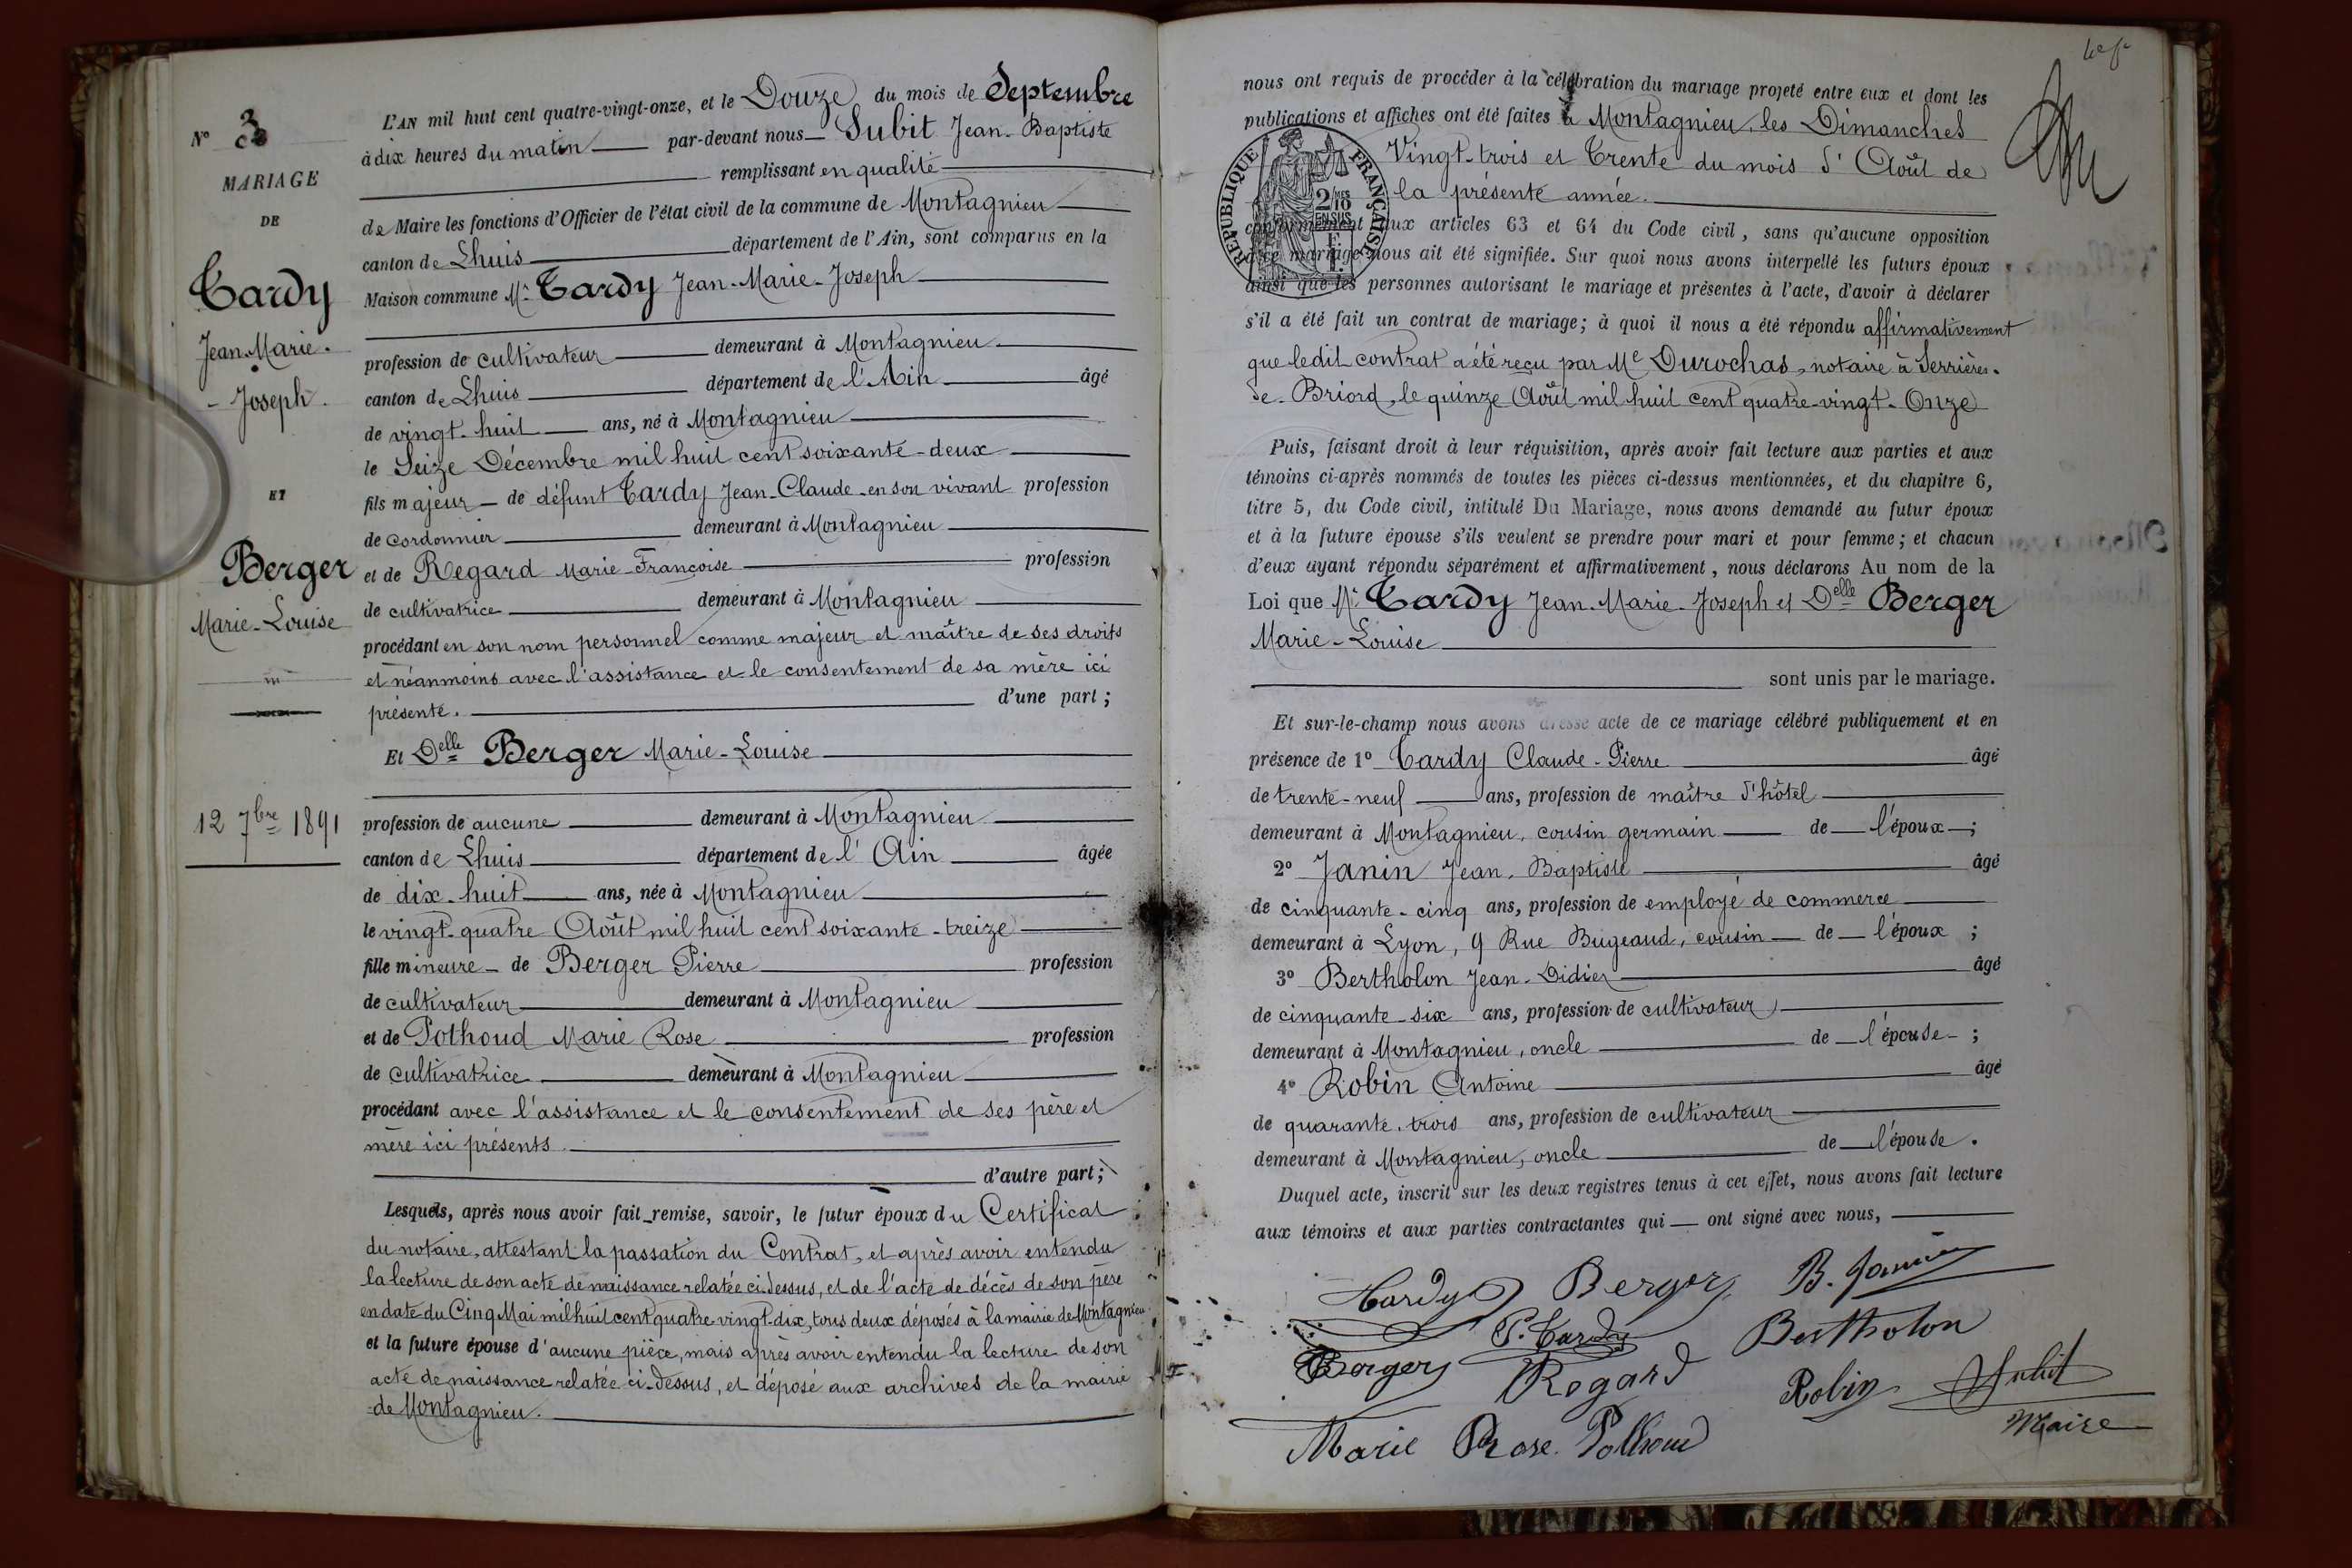 N° 3
MARIAGE
DE
Tardy
Jean-Marie-
-Joseph.
ET
Berger
Marie-Louise
12 7bre 1891
L'AN mil huit cent quatre-vingt-onze, et le Douze du mois de Septembre
à dix heures du matin par-devant nous Subit Jean-Baptiste
remplissant en qualité
de Maire les fonctions d'Officier de l'état civil de la commune de Montagnieu
canton de Lhuis département de l'Ain, sont comparus en la
Maison commune Mr Tardy Jean-Marie-Joseph
profession de cultivateur demeurant à Montagnieu
canton de Lhuis département de l'Ain âgé
de vingt-huit ans, né à Montagnieu
le Seize Décembre mil huit cent soixante-deux
fils majeur de défunt Tardy Jean-Claude en son vivant profession
de cordonnier demeurant à Montagnieu
et de Regard Marie-Françoise profession
de cultivatrice demeurant à Montagnieu
procédant en son nom personnel comme majeur et maître de ses droits
et néanmoins avec l'assistance et le consentement de sa mère ici
présente. d'une part ;
Et Delle Berger Marie-Louise
profession de aucune demeurant à Montagnieu
canton de Lhuis département de l'Ain âgée
de dix-huit ans, née à Montagnieu
le vingt-quatre Août mil huit cent soixante-treize
fille mineure de Berger Pierre profession
de cultivateur demeurant à Montagnieu
et de Pothoud Marie Rose profession
de cultivatrice demeurant à Montagnieu
procédant avec l'assistance et le consentement de ses père et
mère ici présents.
d'autre part ;
Lesquels, après nous avoir fait remise, savoir, le futur époux du Certificat
du notaire, attestant la passation du Contrat, et après avoir entendu
la lecture de son acte de naissance relatée ci-dessus, et de l'acte de décès de son père
en date du Cinq Mai mil huit cent quatre-vingt-dix, tous deux déposés à la mairie de Montagnieu
et la future épouse d'aucune pièce, mais après avoir entendu la lecture de son
acte de naissance relatée ci-dessus, et déposé aux archives de la mairie
de Montagnieu.
nous ont requis de procéder à la célébration du mariage projeté entre eux et dont les
publications et affiches ont été faites à Montagnieu, les Dimanches
Vingt-trois et Trente du mois d'Août de
la présente année.
RÉPUBLIQUE FRANÇAISE
2/10 MES
EN SUS
conformément aux articles 63 et 64 du Code civil, sans qu'aucune opposition
à ce mariage nous ait été signifiée. Sur quoi nous avons interpellé les futurs époux
ainsi que les personnes autorisant le mariage et présentes à l'acte, d'avoir à déclarer
s'il a été fait un contrat de mariage ; à quoi il nous a été répondu affirmativement
que ledit contrat a été reçu par Me Durochas, notaire à Serrières-
de-Briord, le quinze Août mil huit cent quatre-vingt-Onze
Puis, faisant droit à leur réquisition, après avoir fait lecture aux parties et aux
témoins ci-après nommés de toutes les pièces ci-dessus mentionnées, et du chapitre 6,
titre 5, du Code civil, intitulé Du Mariage, nous avons demandé au futur époux
et à la future épouse s'ils veulent se prendre pour mari et pour femme ; et chacun
d'eux ayant répondu séparément et affirmativement, nous déclarons Au nom de la
Loi que Mr Tardy Jean-Marie-Joseph et Delle Berger
Marie-Louise
sont unis par le mariage.
Et sur-le-champ nous avons dressé acte de ce mariage célébré publiquement et en
présence de 1° Tardy Claude-Pierre âgé
de trente-neuf ans, profession de maître d'hôtel
demeurant à Montagnieu, cousin germain de l'époux ;
2° Janin Jean-Baptiste âgé
de cinquante-cinq ans, profession de employé de commerce
demeurant à Lyon, 9 Rue Bugeaud, cousin de l'époux ;
3° Bertholon Jean-Didier âgé
de cinquante-six ans, profession de cultivateur
demeurant à Montagnieu, oncle de l'épouse ;
4° Robin Antoine âgé
de quarante-trois ans, profession de cultivateur
demeurant à Montagnieu, oncle de l'épouse.
Duquel acte, inscrit sur les deux registres tenus à cet effet, nous avons fait lecture
aux témoins et aux parties contractantes qui ont signé avec nous,
Tardy Berger B. Janin
P. Tardy Bertholon
Berger Regard Robin Subit
Marie Rose Pothoud Maire